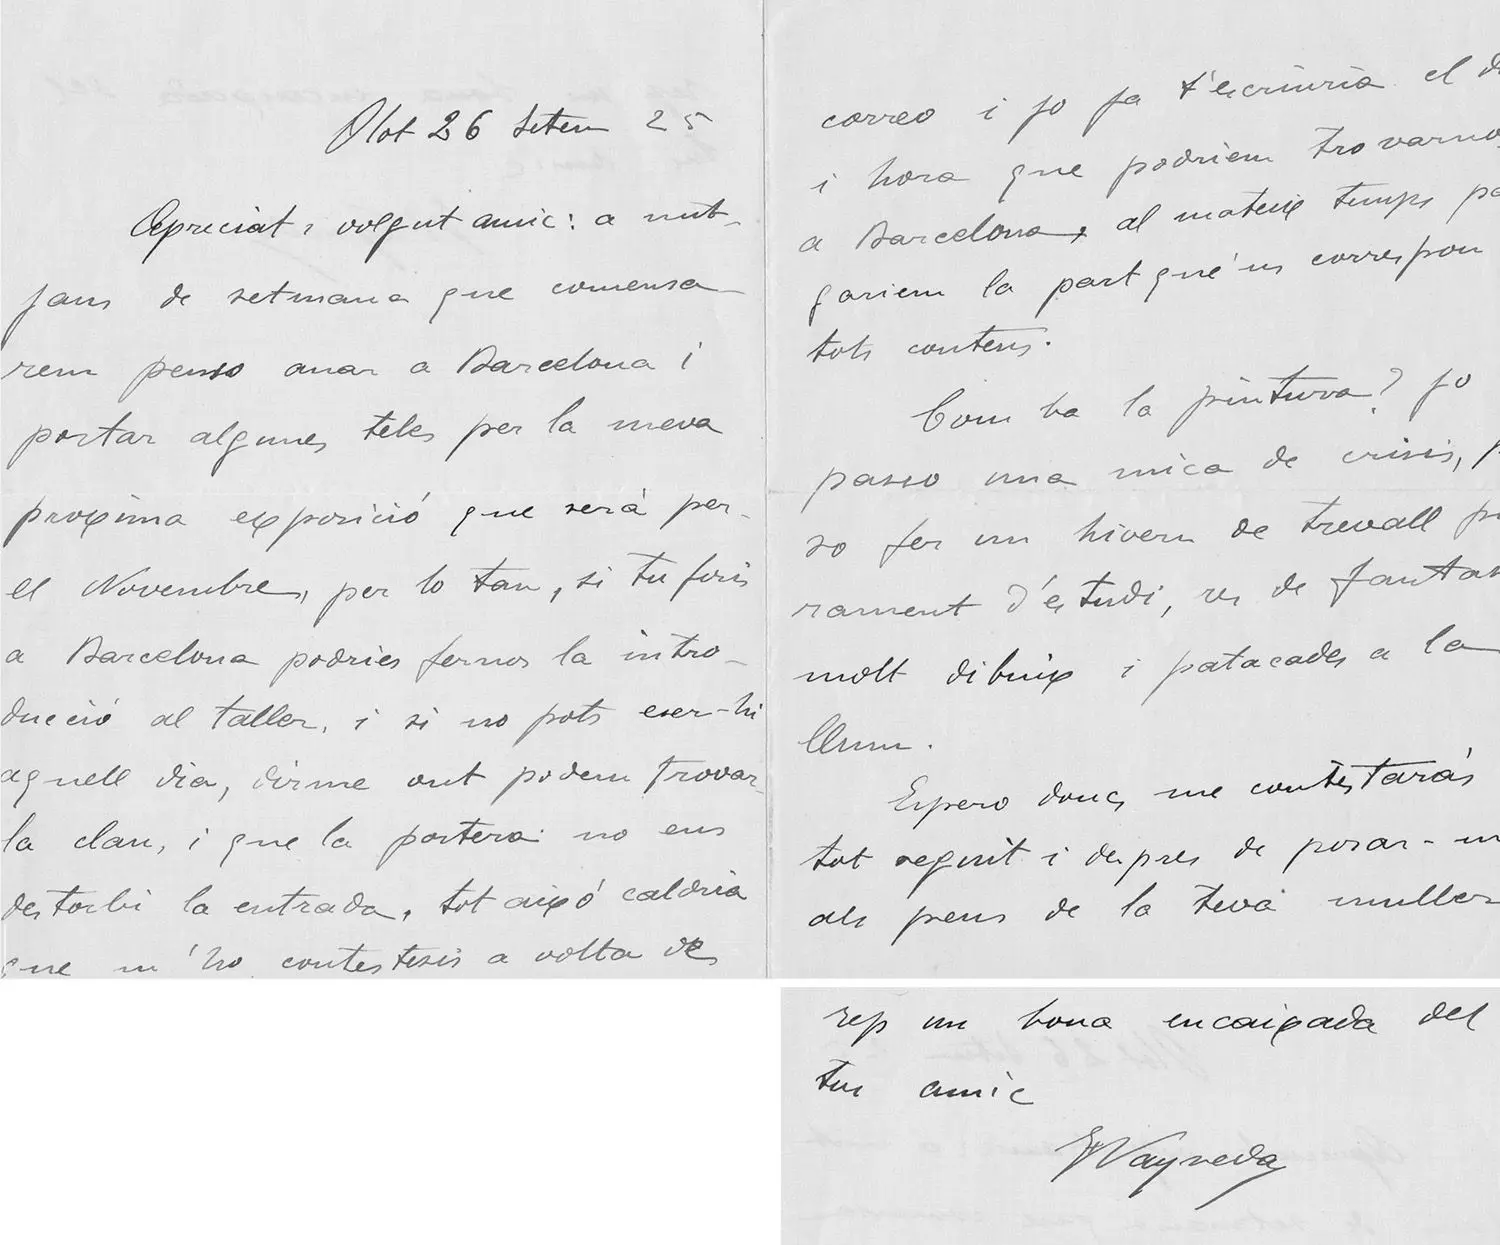 Olot 26 setem 25
Apreciat i volgut amic: a mit-
jans de setmana que comensa-
rem penso anar a Barcelona i
portar algunes teles per la meva
proxima exposició que serà per-
el Novembre, per lo tan, si tu foris
a Barcelona podries fernos la intro-
ducció al taller, i si no pots eser-hi
aquell dia, dirme ont podem trovar
la clau, i que la portera no ens
destorbi la entrada, tot aixó caldria
que m'ho contestesis a volta de
correo i jo ja t'escriuria el
i hora que podriem trovarnos
a Barcelona, al mateix temps pa
gariem la part qué'ns correspon
tots contens.
Com va la pintura? jo
passo una mica de crisis,
so fer un hivern de trevall
rament d'estudi, res de
molt dibuix i patacades a la
llum.
Espero donçs me contestaràs
tot seguit i despres de posar-
als peus de la teva muller
rep un bona encaixada del
tu amic
Vayreda